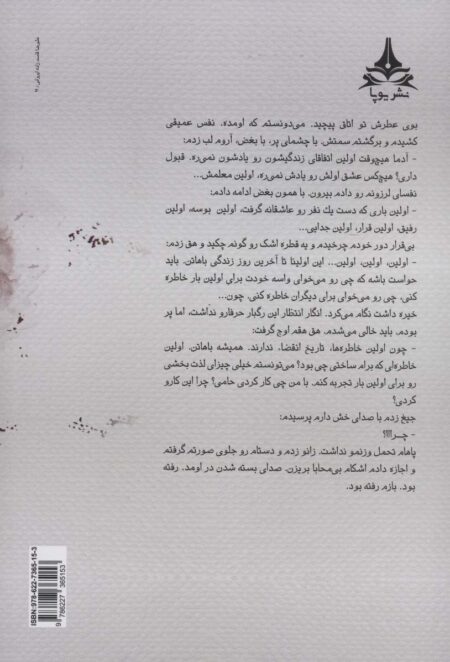 نشر یوپا
بوی عطرش تو اتاق پیچید. می‌دونستم که اومده. نفس عمیقی
کشیدم و برگشتم سمتش. با چشمای پر، با بغض، آروم لب زدم:
- آدما هیچ‌وقت اولین اتفاقای زندگیشون رو یادشون نمی‌ره. قبول
داری؟ هیچ‌کس عشق اولش رو یادش نمی‌ره، اولین معلمش...
نفسای لرزونم رو دادم بیرون. با همون بغض ادامه دادم:
- اولین باری که دست یك نفر رو عاشقانه گرفت، اولین بوسه، اولین
رفیق، اولین قرار، اولین جدایی...
بی‌قرار دور خودم چرخیدم و یه قطره اشک رو گونم چکید و هق زدم:
- اولین، اولین، اولین... این اولینا تا آخرین روز زندگی باهاتن. باید
حواست باشه که چی رو می‌خوای واسه خودت برای اولین بار خاطره
کنی، چی رو می‌خوای برای دیگران خاطره کنی، چون...
خیره داشت نگام می‌کرد. انگار انتظار این رگبار حرفارو نداشت، اما پر
بودم. باید خالی می‌شدم. هق هقم اوج گرفت:
- چون اولین خاطره‌ها، تاریخ انقضا، ندارند. همیشه باهاتن. اولین
خاطره‌ای که برام ساختی چی بود؟ می‌تونستم خیلی چیزای لذت بخشی
رو برای اولین بار تجربه کنم. با من چی کار کردی حامی؟ چرا این کارو
کردی؟
جیغ زدم با صدایی خش دارم پرسیدم:
- چـرااا؟
پاهام تحمل وزنمو نداشت. زانو زدم و دستام رو جلوی صورتم گرفتم
و اجازه دادم اشکام بی‌محابا بریزن. صدای بسته شدن در اومد. رفته
بود. بازم رفته بود.
ISBN: 978-622-7365-15-3
9 786227 365153